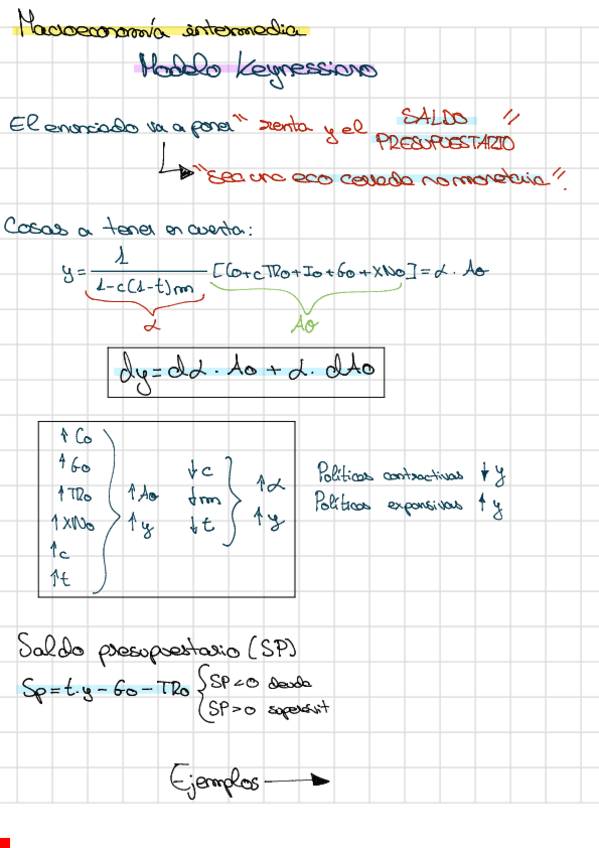 Macroeconomía intermedia
Modelo Keynessiano
El enunciado va a poner "renta y el SALDO PRESUPUESTARIO"
"Sea una eco cerrada no monetaria".
Cosas a tener en cuenta:
y = 1 / 1-c(1-t)m [Co+cTRo+Io+Go+XNo] = α · Ao
α
Ao
dy = dα · Ao + α · dAo
↑ Co
↑ Go
↑ TRo
↑ XNo
↑ c
↑ t
↑ Ao
↑ y
↓ c
↓ m
↓ t
↑ α
↑ y
Políticas contractivas ↓ y
Políticas expansivas ↑ y
Saldo presupuestario (SP)
Sp = t·y - Go - TRo
SP < 0 deuda
SP > 0 superávit
Ejemplos →